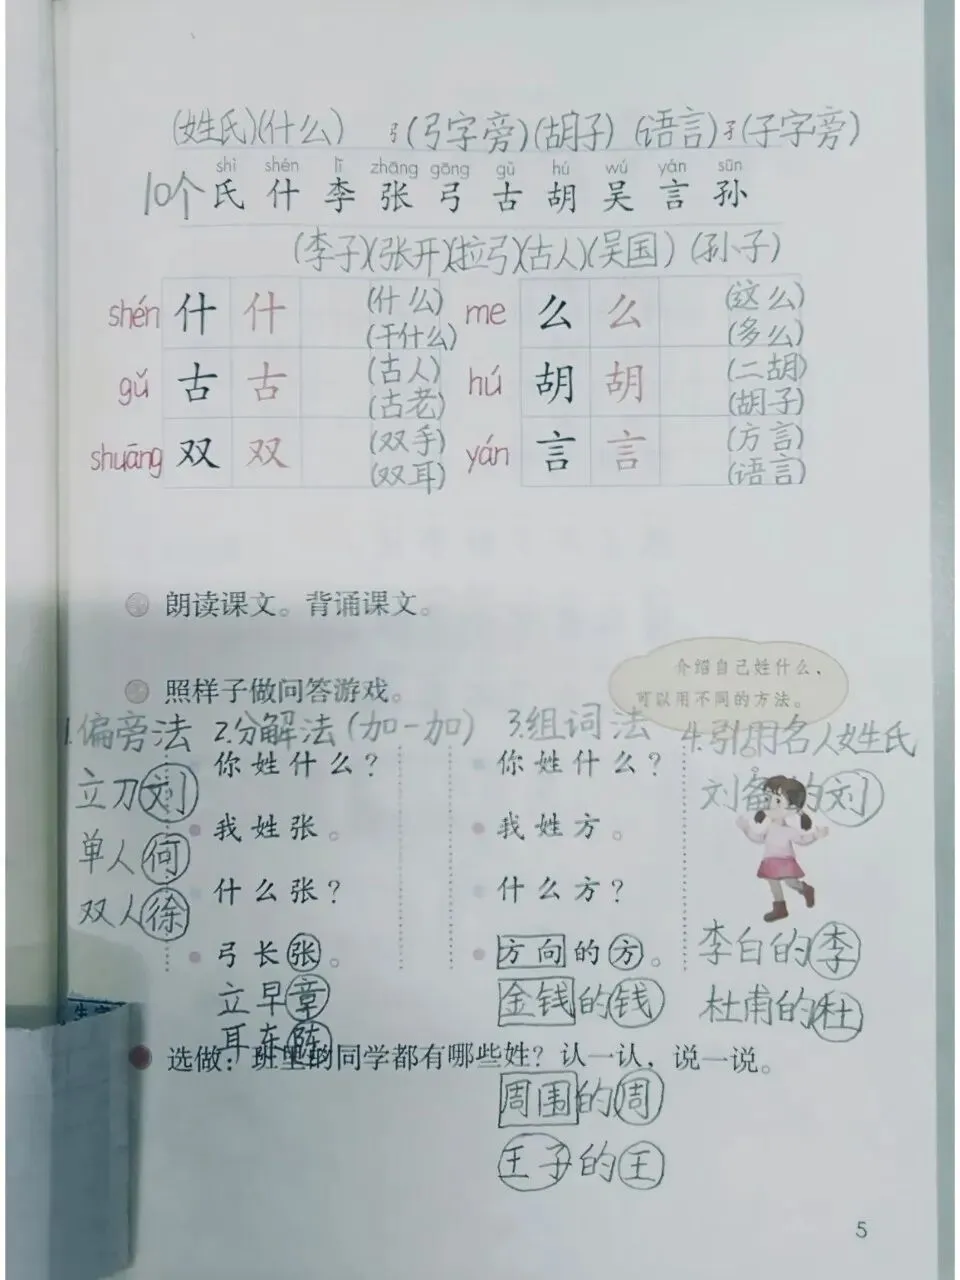 (姓氏)(什么) 弓(弓字旁)(胡子) (语言)孑(子字旁)
shì shén lǐ zhāng gōng gǔ hú wú yán sūn
10个 氏 什 李 张 弓 古 胡 吴 言 孙
(李子)(张开)(拉弓)(古人)(吴国) (孙子)
shén 什 什 (什么) me 么 么 (这么)
(干什么) (多么)
gǔ 古 古 (古人) hú 胡 胡 (二胡)
(古老) (胡子)
shuāng 双 双 (双手) yán 言 言 (方言)
(双耳) (语言)
朗读课文。背诵课文。
介绍自己姓什么，
可以用不同的方法。
照样子做问答游戏。
1.偏旁法 2.分解法(加一加) 3.组词法 4.引用名人姓氏
立刀刘
单人何
双人徐
你姓什么？
我姓张。
什么张？
弓长张。
立早章
耳东陈
你姓什么？
我姓方。
什么方？
方向的方。
金钱的钱
刘备的刘
李白的李
杜甫的杜
选做：班里的同学都有哪些姓？认一认，说一说。
周围的周
王子的王
5